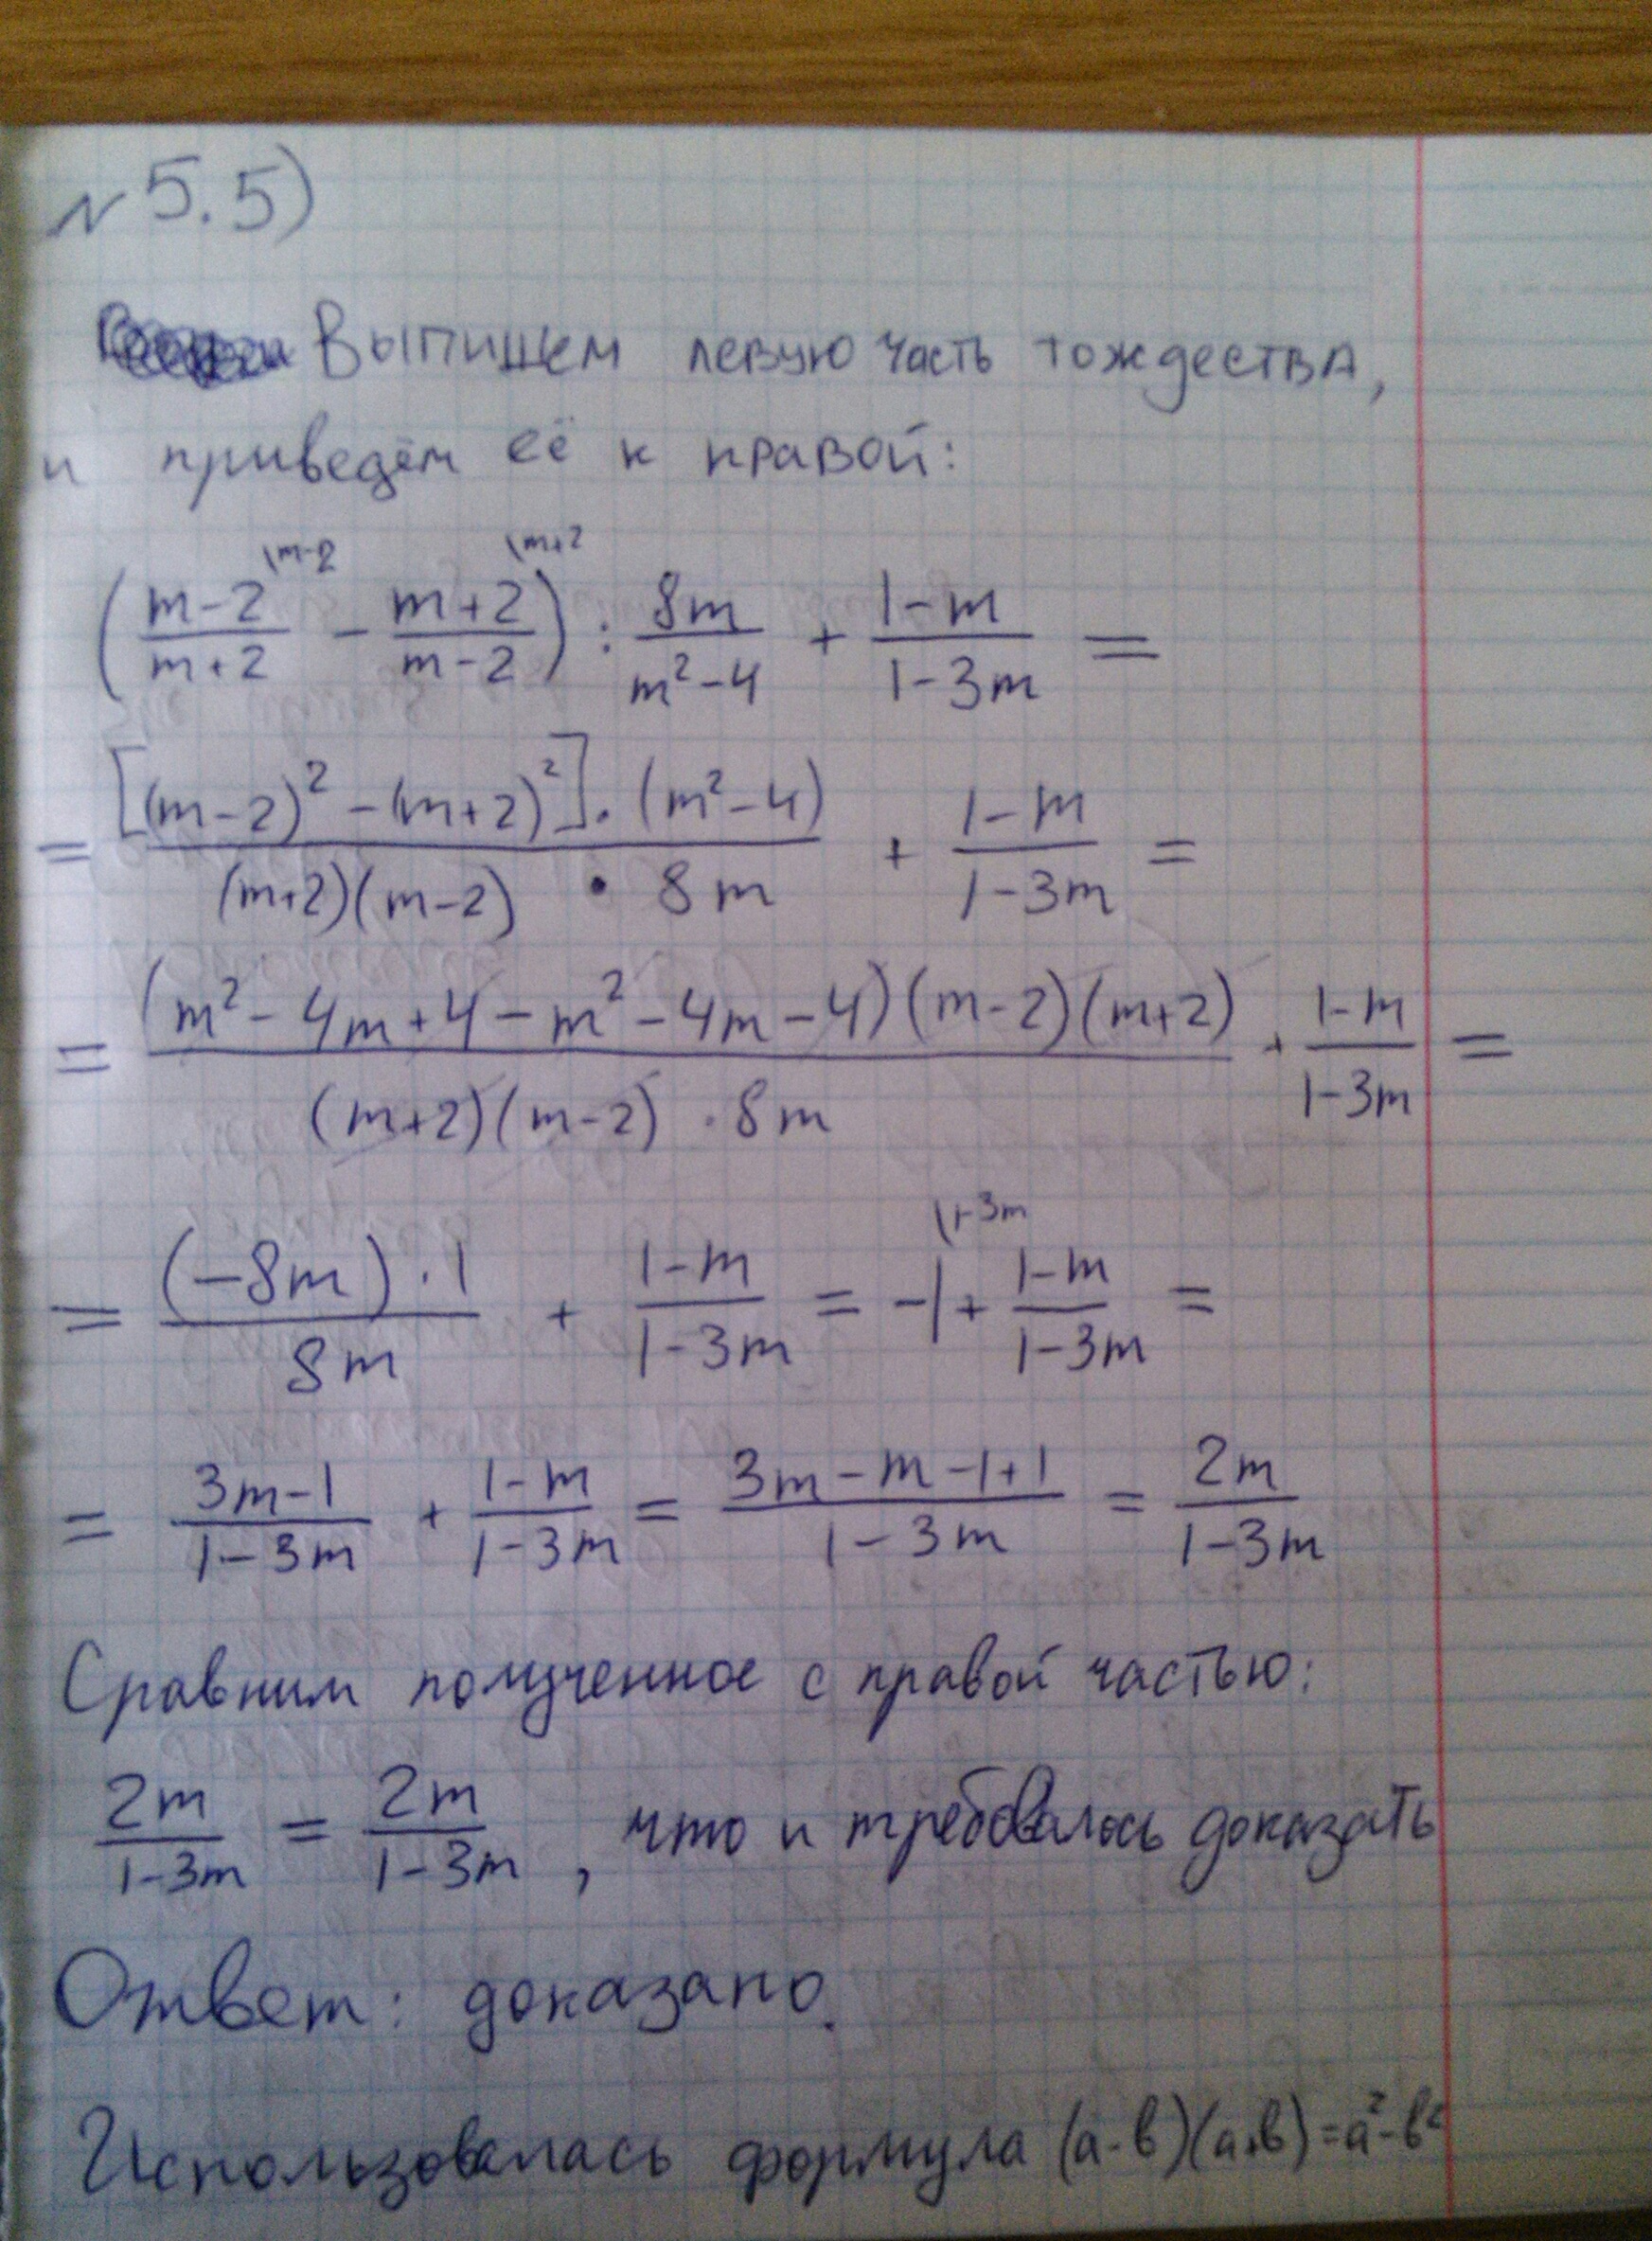 № 5.5)
Выпишем левую часть тождества,
и приведём её к правой:
((m-2)/(m+2) \m-2 - (m+2)/(m-2) \m+2) : 8m/(m²-4) + (1-m)/(1-3m) =
= [(m-2)² - (m+2)²]·(m²-4)/((m+2)(m-2) · 8m) + (1-m)/(1-3m) =
= (m²-4m+4-m²-4m-4)(m-2)(m+2)/((m+2)(m-2)·8m) + (1-m)/(1-3m) =
= (-8m)·1/8m + (1-m)/(1-3m) = -1 \1-3m + (1-m)/(1-3m) =
= (3m-1)/(1-3m) + (1-m)/(1-3m) = (3m-m-1+1)/(1-3m) = 2m/(1-3m)
Сравним полученное с правой частью:
2m/(1-3m) = 2m/(1-3m), что и требовалось доказать
Ответ: доказано.
Использовалась формула (a-b)(a+b)=a²-b²